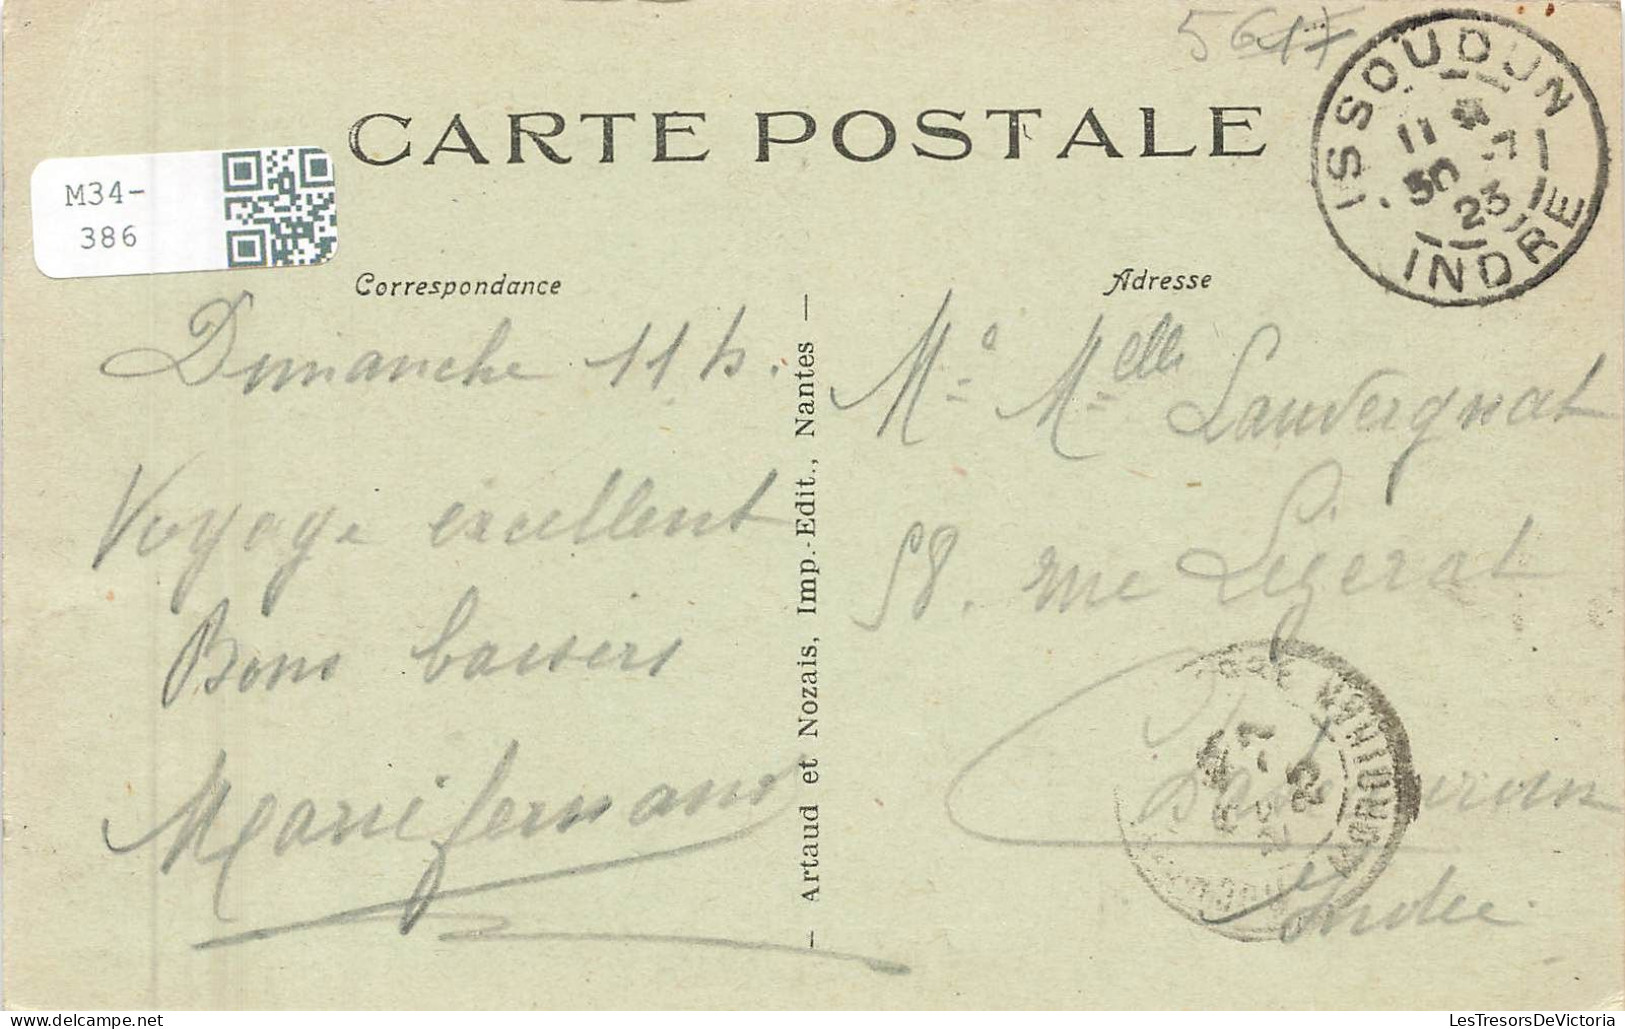 5617
CARTE POSTALE
ISSOUDUN
11 30
7
23
INDRE
M34-
386
Correspondance
Adresse
Dimanche 11 h.
Voyage excellent
Bons baisers
Marifernand
— Artaud et Nozais, Imp.-Edit., Nantes —
Me Melle Lauvergnat
58. rue Ligerat
Indre
LesTresorsDeVictoria